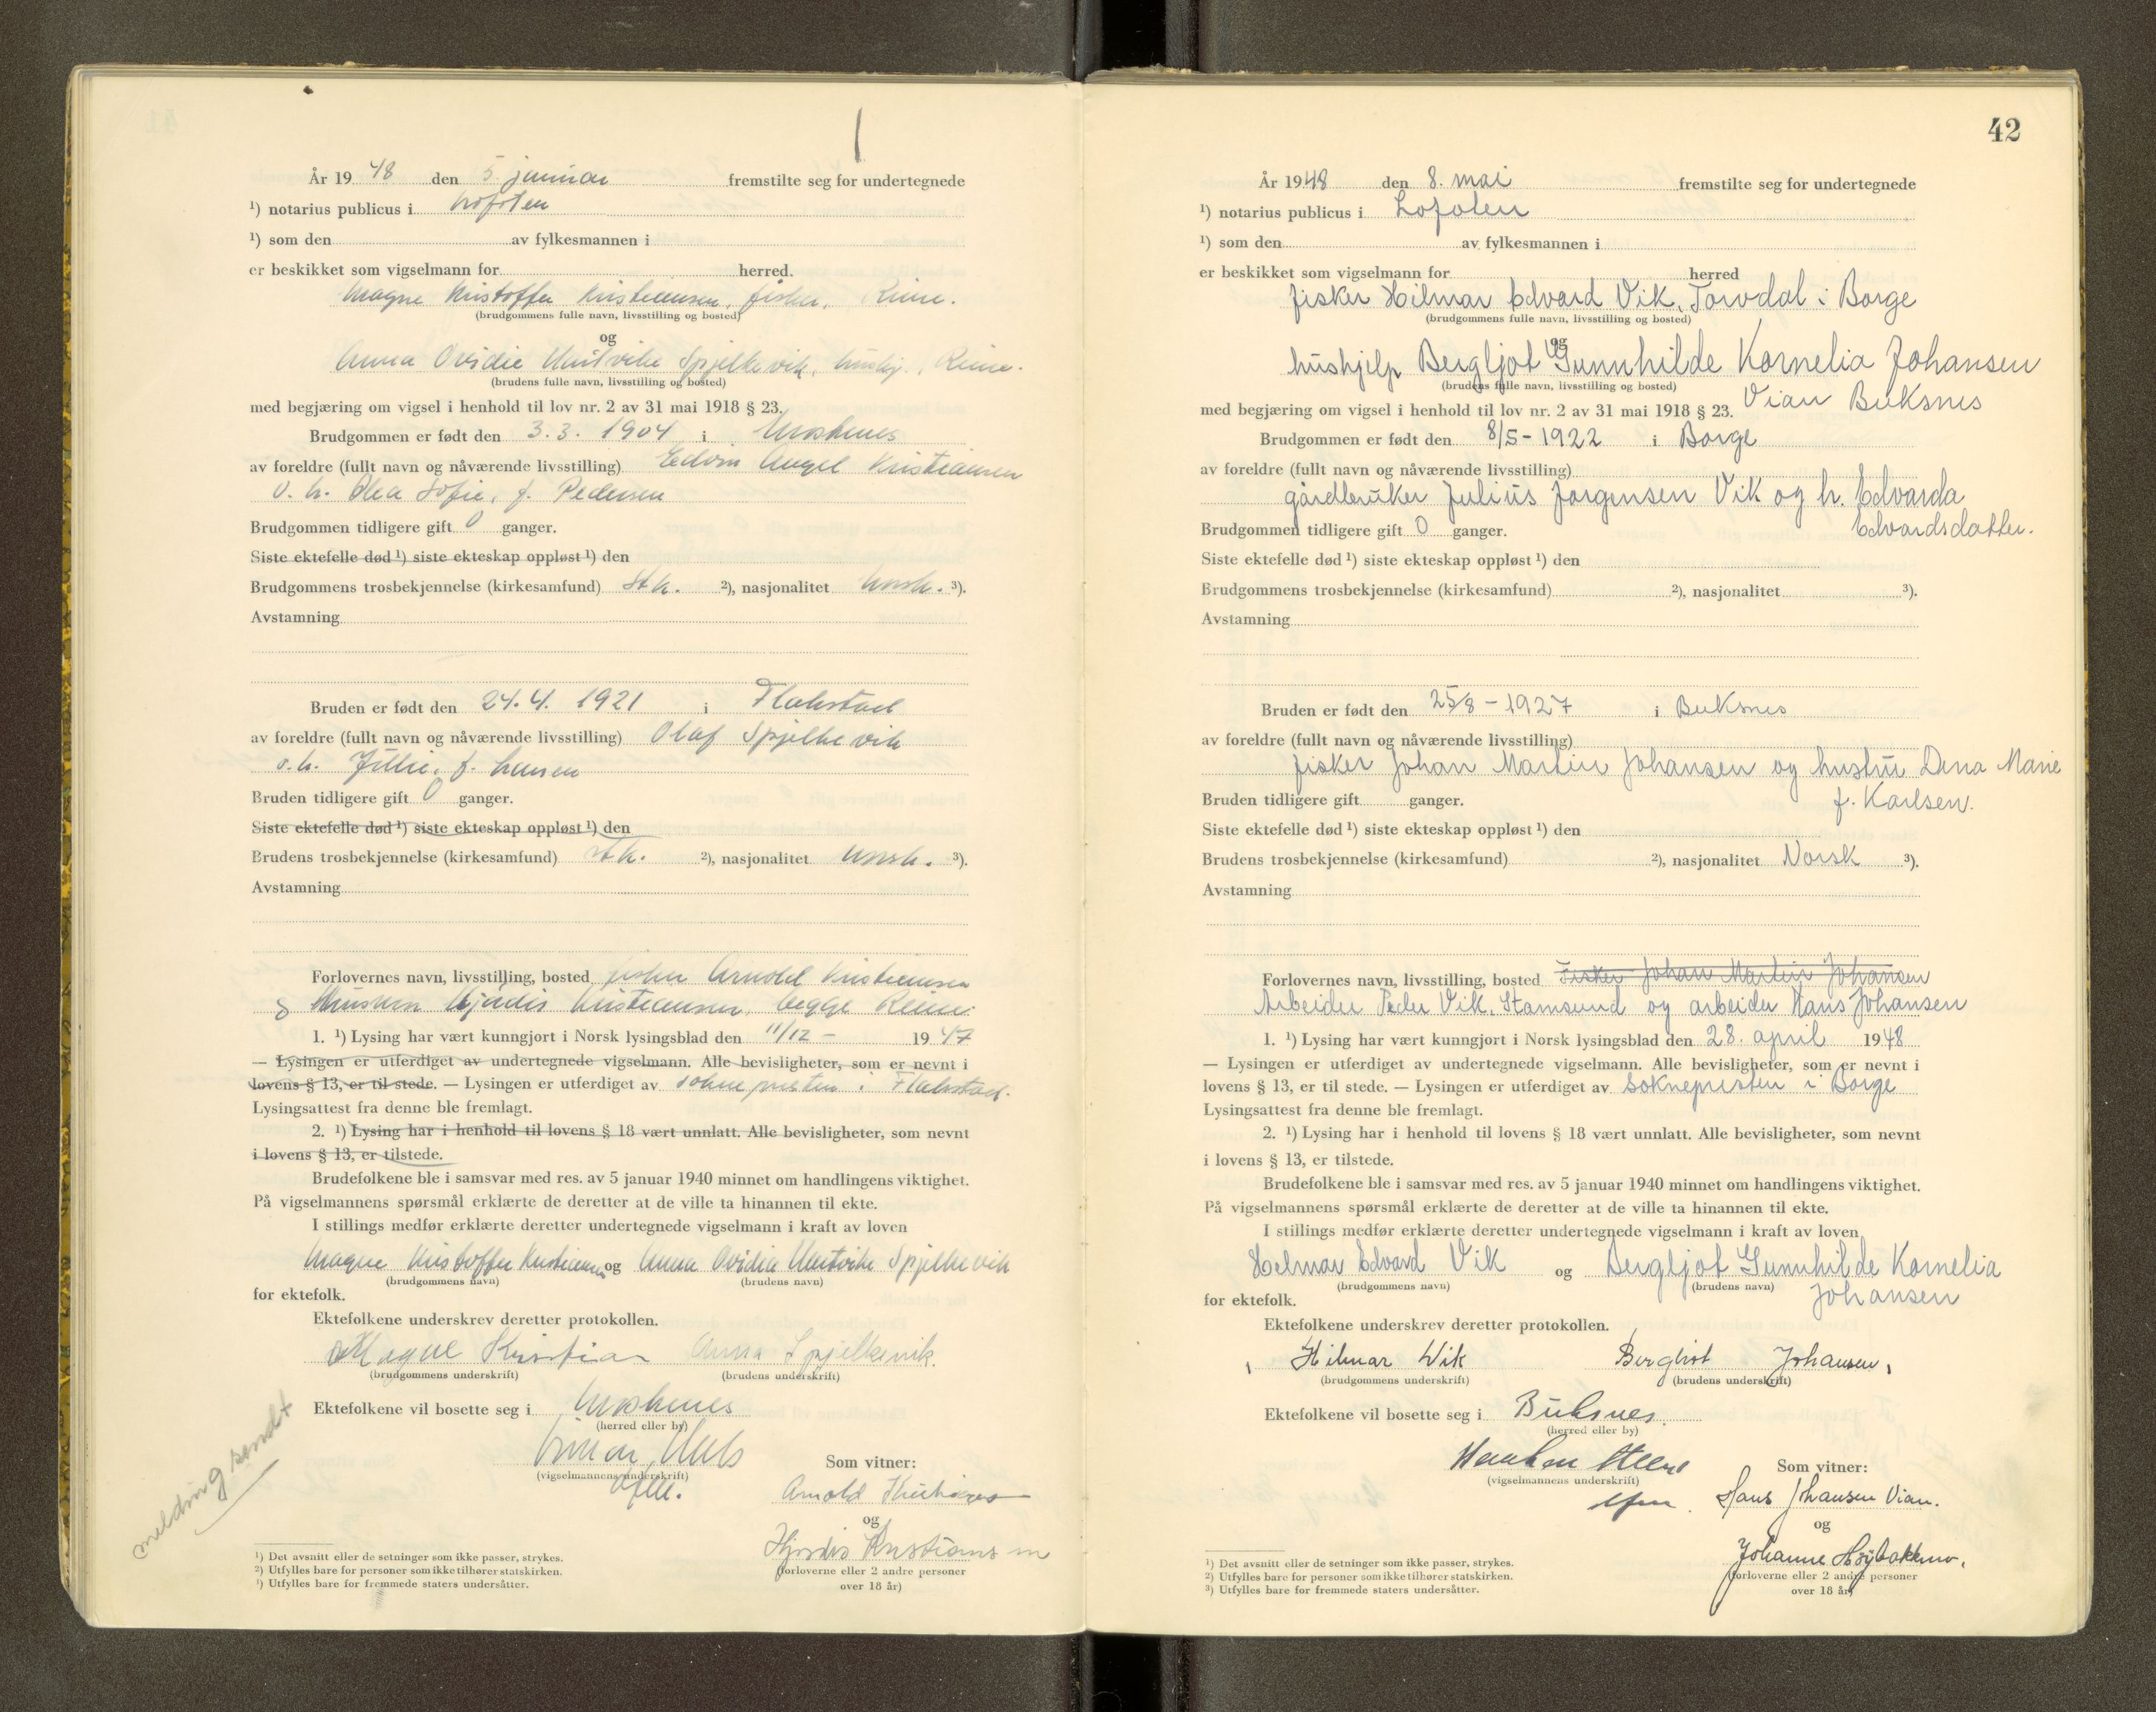 1
År 1948 den 5. januar fremstilte seg for undertegnede
¹) notarius publicus i Lofoten
¹) som den av fylkesmannen i
er beskikket som vigselmann for herred.
Magne Kristoffer Kristiansen, fisker, Reine.
(brudgommens fulle navn, livsstilling og bosted)
og
Anna Ovidie Spjelkevik, hushj., Reine.
(brudens fulle navn, livsstilling og bosted)
med begjæring om vigsel i henhold til lov nr. 2 av 31 mai 1918 § 23.
Brudgommen er født den 3.3. 1904 i Moskenes
av foreldre (fullt navn og nåværende livsstilling) Edvin Angel Kristiansen
o. h. Olea Sofie, f. Pedersen
Brudgommen tidligere gift 0 ganger.
Siste ektefelle død ¹) siste ekteskap oppløst ¹) den
Brudgommens trosbekjennelse (kirkesamfund) st.k. ²), nasjonalitet norsk. ³).
Avstamning
Bruden er født den 24.4. 1921 i Flakstad
av foreldre (fullt navn og nåværende livsstilling) Olaf Spjelkevik
o.h. f. Hansen
Bruden tidligere gift 0 ganger.
Siste ektefelle død ¹) siste ekteskap oppløst ¹) den
Brudens trosbekjennelse (kirkesamfund) st.k. ²), nasjonalitet norsk. ³).
Avstamning
Forlovernes navn, livsstilling, bosted fisker Arnold Kristiansen
og Hjørdis Kristiansen, begge Reine.
1. ¹) Lysing har vært kunngjort i Norsk lysingsblad den 11/12 - 1947
— Lysingen er utferdiget av undertegnede vigselmann. Alle bevisligheter, som er nevnt i
lovens § 13, er til stede. — Lysingen er utferdiget av soknepresten i Flakstad.
Lysingsattest fra denne ble fremlagt.
2. ¹) Lysing har i henhold til lovens § 18 vært unnlatt. Alle bevisligheter, som nevnt
i lovens § 13, er tilstede.
Brudefolkene ble i samsvar med res. av 5 januar 1940 minnet om handlingens viktighet.
På vigselmannens spørsmål erklærte de deretter at de ville ta hinannen til ekte.
I stillings medfør erklærte deretter undertegnede vigselmann i kraft av loven
Magne Kristoffer Kristiansen og Anna Ovidia Spjelkevik
(brudgommens navn) (brudens navn)
for ektefolk.
Ektefolkene underskrev deretter protokollen.
Magne Kristian Anna Spjelkevik.
(brudgommens underskrift) (brudens underskrift)
Ektefolkene vil bosette seg i Moskenes
(herred eller by)
(vigselmannens underskrift)
Som vitner:
Arnold Kristiansen
og
Hjørdis Kristiansen
(forloverne eller 2 andre personer
over 18 år)
melding sendt
¹) Det avsnitt eller de setninger som ikke passer, strykes.
²) Utfylles bare for personer som ikke tilhører statskirken.
³) Utfylles bare for fremmede staters undersåtter.
42
År 1948 den 8. mai fremstilte seg for undertegnede
¹) notarius publicus i Lofoten
¹) som den av fylkesmannen i
er beskikket som vigselmann for herred
fisker Hilmar Edvard Vik, Torvdal i Borge
(brudgommens fulle navn, livsstilling og bosted)
og
hushjelp Bergljot Gunnhilde Kornelia Johansen
(brudens fulle navn, livsstilling og bosted)
Vian Buksnes
med begjæring om vigsel i henhold til lov nr. 2 av 31 mai 1918 § 23.
Brudgommen er født den 8/5 - 1922 i Borge
av foreldre (fullt navn og nåværende livsstilling)
gårdbruker Julius Jørgensen Vik og h. Edvarda
Edvardsdatter.
Brudgommen tidligere gift 0 ganger.
Siste ektefelle død ¹) siste ekteskap oppløst ¹) den
Brudgommens trosbekjennelse (kirkesamfund) ²), nasjonalitet ³).
Avstamning
Bruden er født den 25/8 - 1927 i Buksnes
av foreldre (fullt navn og nåværende livsstilling)
fisker Johan Martin Johansen og hustru Dina Marie
f. Karlsen.
Bruden tidligere gift ganger.
Siste ektefelle død ¹) siste ekteskap oppløst ¹) den
Brudens trosbekjennelse (kirkesamfund) ²), nasjonalitet Norsk ³).
Avstamning
Forlovernes navn, livsstilling, bosted Fisker Johan Martin Johansen
Arbeider Peder Vik, Stamsund og arbeider Hans Johansen
1. ¹) Lysing har vært kunngjort i Norsk lysingsblad den 28. april 1948
— Lysingen er utferdiget av undertegnede vigselmann. Alle bevisligheter, som er nevnt i
lovens § 13, er til stede. — Lysingen er utferdiget av soknepresten i Borge
Lysingsattest fra denne ble fremlagt.
2. ¹) Lysing har i henhold til lovens § 18 vært unnlatt. Alle bevisligheter, som nevnt
i lovens § 13, er tilstede.
Brudefolkene ble i samsvar med res. av 5 januar 1940 minnet om handlingens viktighet.
På vigselmannens spørsmål erklærte de deretter at de ville ta hinannen til ekte.
I stillings medfør erklærte deretter undertegnede vigselmann i kraft av loven
Helmar Edvard Vik og Bergljot Gunnhilde Kornelia
(brudgommens navn) (brudens navn)
Johansen
for ektefolk.
Ektefolkene underskrev deretter protokollen.
Hilmar Wik Bergliot Johansen,
(brudgommens underskrift) (brudens underskrift)
Ektefolkene vil bosette seg i Buksnes.
(herred eller by)
(vigselmannens underskrift)
Som vitner:
Hans Johansen Vian.
og
Johanne Høybakken.
(forloverne eller 2 andre personer
over 18 år)
¹) Det avsnitt eller de setninger som ikke passer, strykes.
²) Utfylles bare for personer som ikke tilhører statskirken.
³) Utfylles bare for fremmede staters undersåtter.